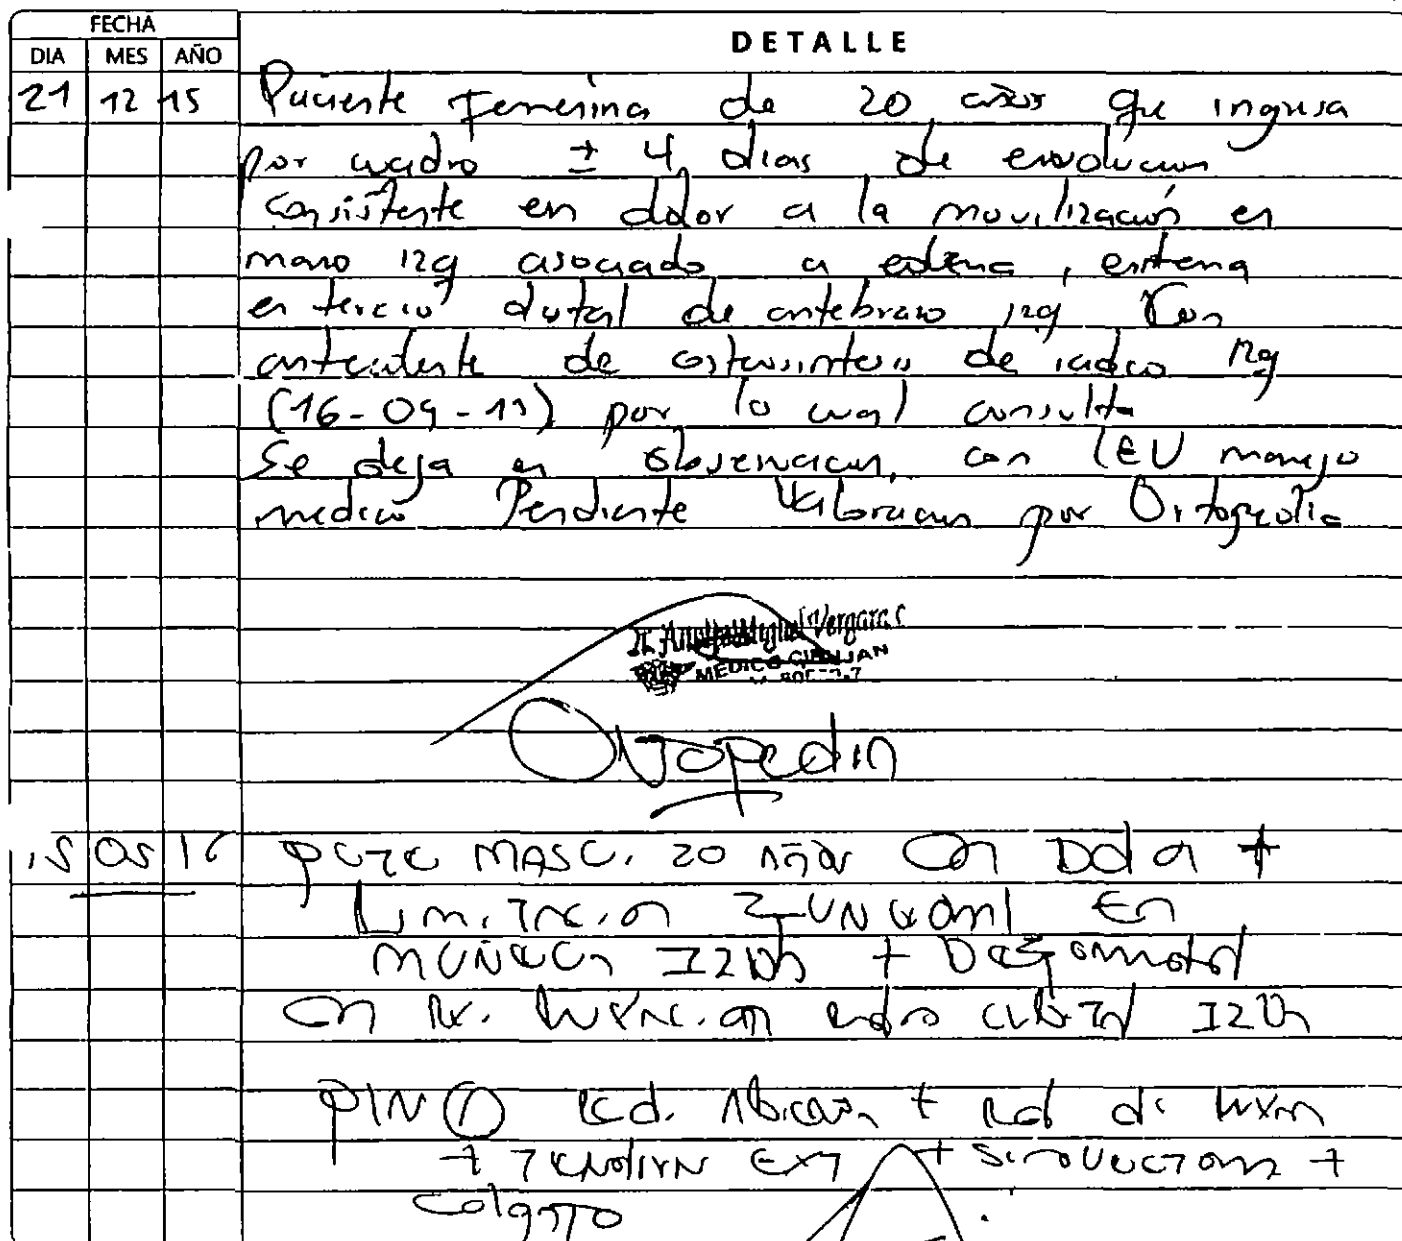 FECHA
DETALLE
DIA MES AÑO
21 12 15 Paciente Femenina de 20 años que ingresa
por cuadro ± 4 dias de evolucion
consistente en dolor a la movilización en
mano izq asociado a edema, eritema
en tercio distal de antebrazo izq Con
antecedente de osteosintesis de radio izq
(16-09-15) por lo cual consulta
Se deja en observacion, con LEV manejo
medico Pendiente Valoracion por Ortopedia
Vergara C
MEDICO CIRUJAN
Ortopedia
15 05 16 pcte MASC. 20 Años Con Dolor +
Limitacion Funcional En
MUÑECA IZDA +
Con Rx. Luxacion radio cubital IZDA
PLAN red. Abierta + Red de luxn
+ EXT + Sinovectomia +